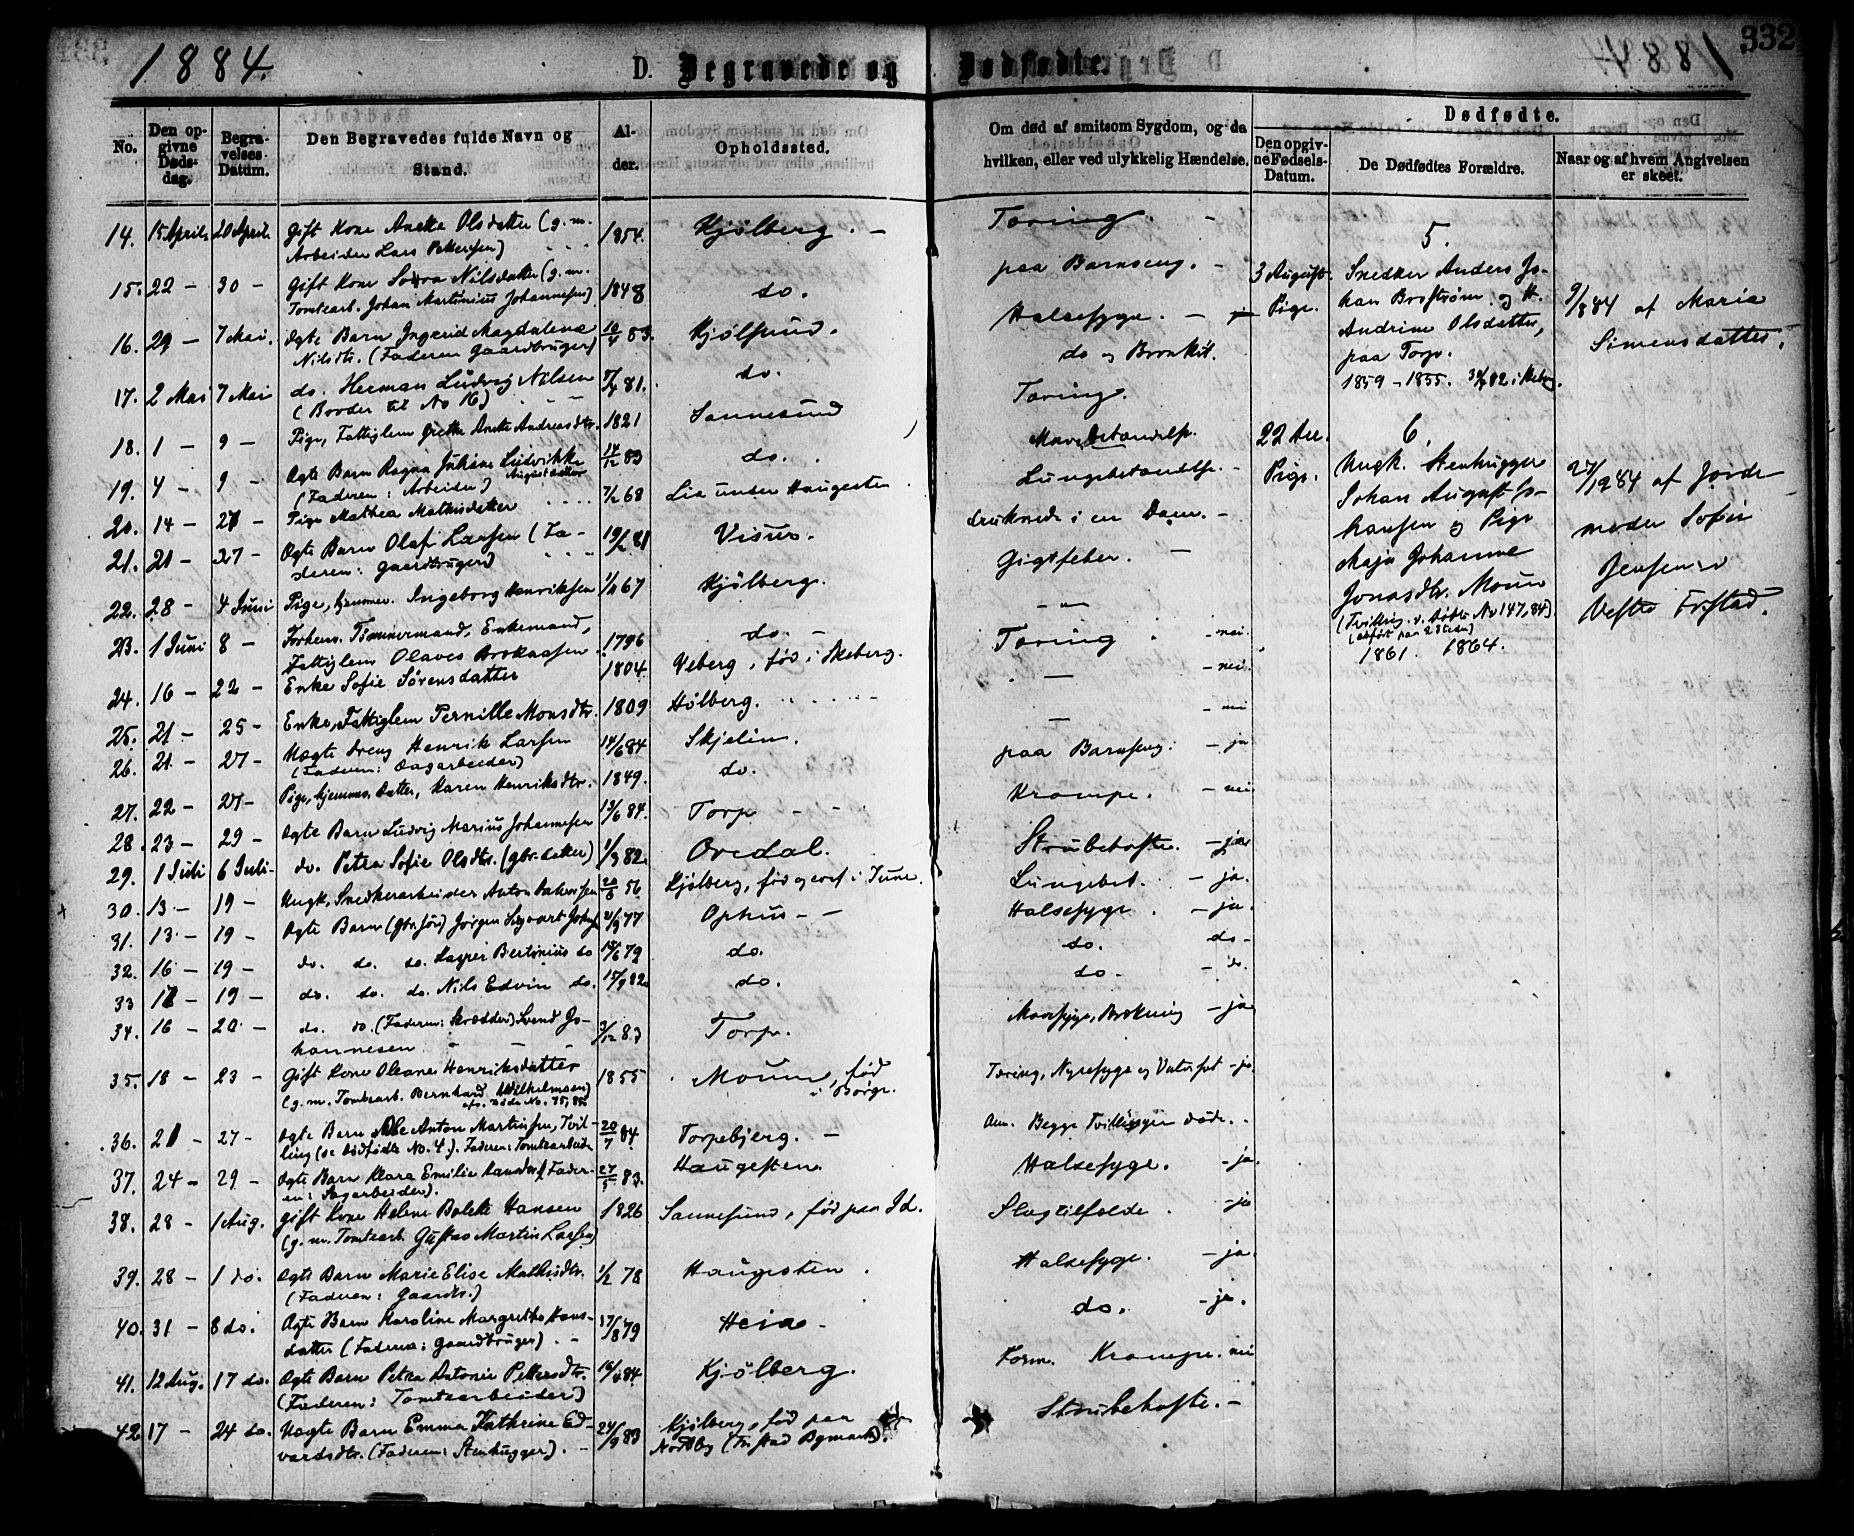 1884.
D. Begravede og Dødfødte.
332
No.
Den opgivne Dødsdag.
Begravelses Datum.
Den Begravedes fulde Navn og Stand.
Alder.
Opholdssted.
Om død af smitsom Sygdom, og da hvilken, eller ved ulykkelig Hændelse.
Dødfødte.
Den opgivne Fødsels-Datum.
De Dødfødtes Forældre.
Naar og af hvem Angivelsen er skeet.
14. 15 April 20 April Gift Kone Anette Olsdatter (g. m. 1854. Kjølberg. - Tæring. -
Arbeider Lars Pettersen)
15. 22 - 30 - Gift Kone Nilsdatter (g. m. 1848 do. paa Barnseng. -
Tomtearb. Johan Martinius Johannesen)
16. 29 - 7 Mai. Ægte Barn Ingerid Magdalena 83. Kjølsund. Halsesyge. -
Nilsdtr. (Faderen Gaardbruger)
17. 2 Mai 7 Mai do. Herman Ludvig Nilsen 81. do. do og Bronkit.
(Broder til No 16)
18. 1 - 9 - Pige, Fattiglem Grethe Anette Andreasdtr. 1821 Sannesund Tæring.
19. 4 - 9 - Ægte Barn Ragna Juliane Ludvikke Augustdatter 14/12 83 do. Mavebetændelse.
(Faderen: Arbeider)
20. 14 - 21 - Pige Mathea Mathisdatter 7/2 68 Lia under Haugesten Lungebetændelse. -
21. 21 - 27 - Ægte Barn Olaf Larsen (Fa- 19/2 81 Visur. druknede i en Dam. -
deren: Gaardbruger)
22. 28 - 4 Juni Pige, hjemmev. Ingeborg Henriksen 67 Kjølberg. Gigtfeber. -
23. 1 Juni 8 - Forhenv. Tømmermand, Enkemand, 1796 do. -
Fattiglem Olaves
24. 16 - 22 - Enke Sofie Sørensdatter 1804. Veberg, fød i Skeberg. Tæring - nei.
25. 21 - 25 - Enke, Fattiglem Pernille Monsdtr. 1809 Hølberg. - nei.
26. 21 - 27 - Uægte Dreng Henrik Larsen 14/6 84 Skjelin. - nei
(Faderen: Dagarbeider)
27. 22 - 27 - Pige, hjemmev. Datter, Karen Henriksdtr. 1849. do. paa Barnseng. - ja
28. 23 - 29 - Ægte Barn Ludvig Marius Johannesen 13/6 84. Torp - Krampe. - nei
29. 1 Juli 6 Juli do. Petra Sofie Olsdtr. (gbr. datter) 1/9 82. Oredal. Strubehoste. - ja
30. 13 - 19 - Ungk. Snedkerarbeider Anton 56 Kjølberg, fød og conf i Tune. Lungebet. - ja.
31. 13 - 19 - Ægte Barn (gbr. søn) Jørgen Sigvart 77 Ophus - Halsesyge. - ja.
32. 16 - 19 - do. do. do. Bertinius do 79 do. do. do -
33 17 - 19 - do. do. do. Nils Edvin do. 15/9 82 do. do - do.
34. 16 - 20 - do. do (Faderen: Skrædder) Svend Jo- 3/12 83 Torp. Mavesyge, Brækning - ja
hannesen
35. 18 - 23 - Gift Kone Oleane Henriksdatter 1855 Moum, fød i Borge. Tæring, Nyresyge og Vatersot - ja
(g. m. Tomtearb. Bernhard Wilhelmsen)
36. 21 - 27 - Ægte Barn Ole Anton Martinsen, Tvil- 20/7 84. Torpebjerg. - Anm. Begge Tvillinger døde.
ling (se dødfødte No. 4). Faderen: Tomtearbeider
37. 24 - 29 - Ægte Barn Klara Emilie Hansdtr (Fader- 27/5 83. Haugesten. Halsesyge. - ja.
en: Dagarbeider).
38. 28 - 1 Aug. Gift Kone Helene Bolette Hansen 1826 Sannesund, fød paa Id. Slagtilfælde. - ja
(g. m. Tomtearb. Gustav Martin Larsen)
39. 28 - 1 do. Ægte Barn Marie Elise Mathisdtr. 1/2 78 Haugesten. Halsesyge. - ja.
(Faderen: Gaardbr.)
40. 31 - 8 do. Ægte Barn Karoline Margrethe Hans- 17/8 79 Heia - do. - ja.
datter (Faderen: Gaardbruger). -
41. 12 Aug. 17 do. Ægte Barn Petra Antonie Pettersdtr. 84. Kjølberg. Form. Krampe. nei
(Faderen: Tomtearbeider)
42 17 - 24 do. Uægte Barn Emma Kathrine Ed- 24/9 83 Kjølberg, fød paa Strubehoste. -
vardsdtr. (Faderen: Stenhugger). - Nordby (
5.
3 August. Snedker Anders Jo-
Pige. han Broström og H. 9/8 84 af Maria
Andrine Olsdatter, Simensdatter.
paa Torp.
1859 - 1855.
6.
22 Dec. Ungk. Stenhugger
Pige. Johan August Jo- 27/12 84 af Jorde-
hansen og Pige moder Sofie
Maja Johanne Jensen
Jonasdtr. Moum Vestre Fristad.
(Tvilling v. døbte No 147, 84)
1861. 1864.